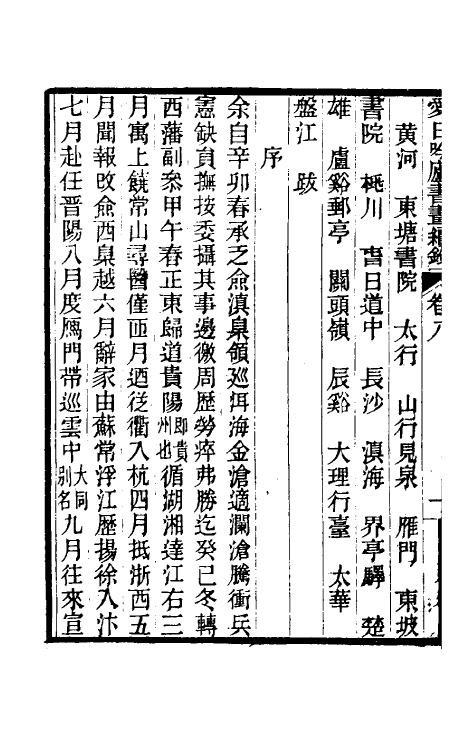 愛日吟廬書畫續錄 卷八
黄河 東塘書院 太行 山行見泉 雁門 東坡
書院 桃川 旾日道中 長沙 滇海 界亭驛 楚
雄 盧谿郵亭 關頭嶺 辰谿 大理行臺 太華
盤江 跋
序
余自辛卯春承乏僉滇臬領廵洱海金滄適瀾滄騰衝兵
憲缺員撫按委攝其事邊徼周歷勞瘁弗勝迄癸巳冬轉
西藩副叅甲午春正東歸道貴陽即貴州也循湖湘達江右三
月寓上饒常山尋醫僅匝月廼從衢入杭四月抵浙西五
月聞報改僉西臬越六月辭家由蘇常浮江歷揚徐入汴
七月赴任晋陽八月度鴈門帶巡雲中大同别名九月往來宣